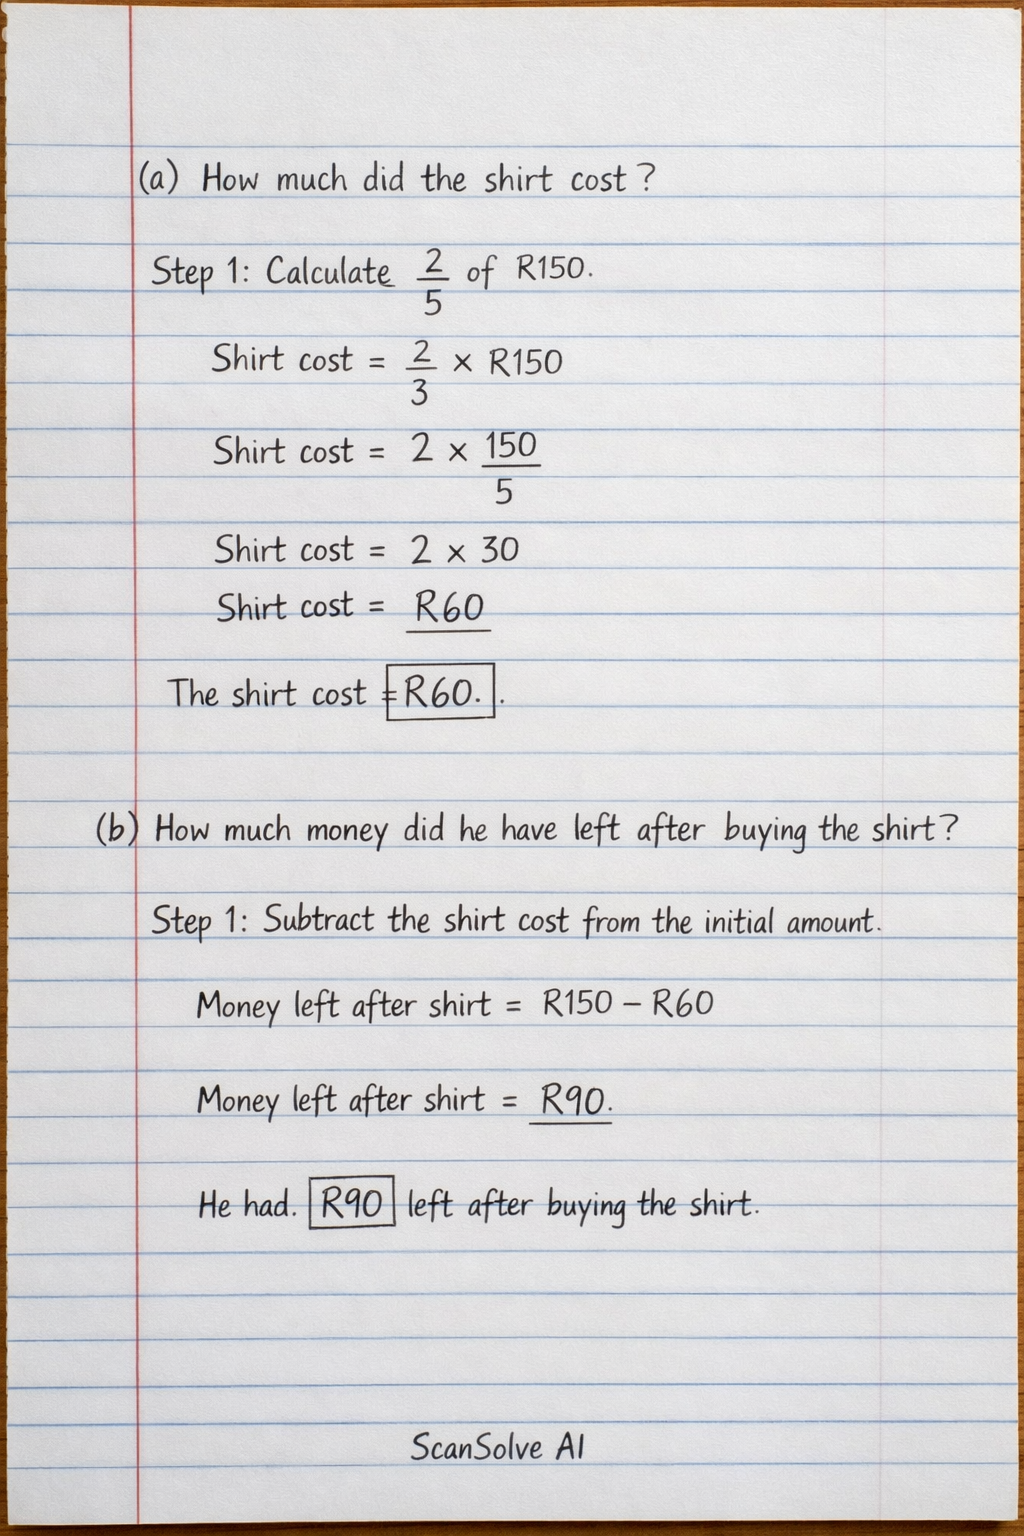 (a) How much did the shirt cost?
Step 1: Calculate 2/5 of R150.
Shirt cost = 2/3 × R150
Shirt cost = 2 × 150/5
Shirt cost = 2 × 30
Shirt cost = R60
The shirt cost = R60. .
(b) How much money did he have left after buying the shirt?
Step 1: Subtract the shirt cost from the initial amount.
Money left after shirt = R150 – R60
Money left after shirt = R90.
He had. R90 left after buying the shirt.
ScanSolve AI